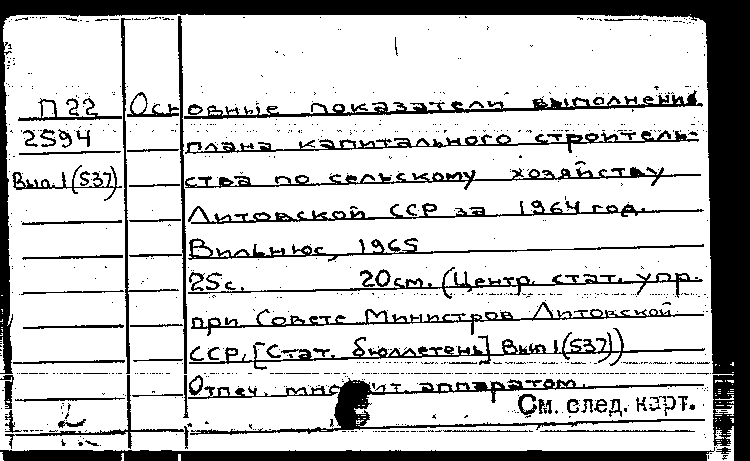 П 22 Основные показатели выполнения
2594 плана капитального строитель-
Вып.1(537) ства по сельскому хозяйству
Литовской ССР за 1964 год.
Вильнюс, 1965
25с. 20см. (Центр. стат. упр.
при Совете Министров Литовской
ССР, [Стат. бюллетень] Вып 1(537))
Отпеч. аппаратом.
См. след. карт.
2